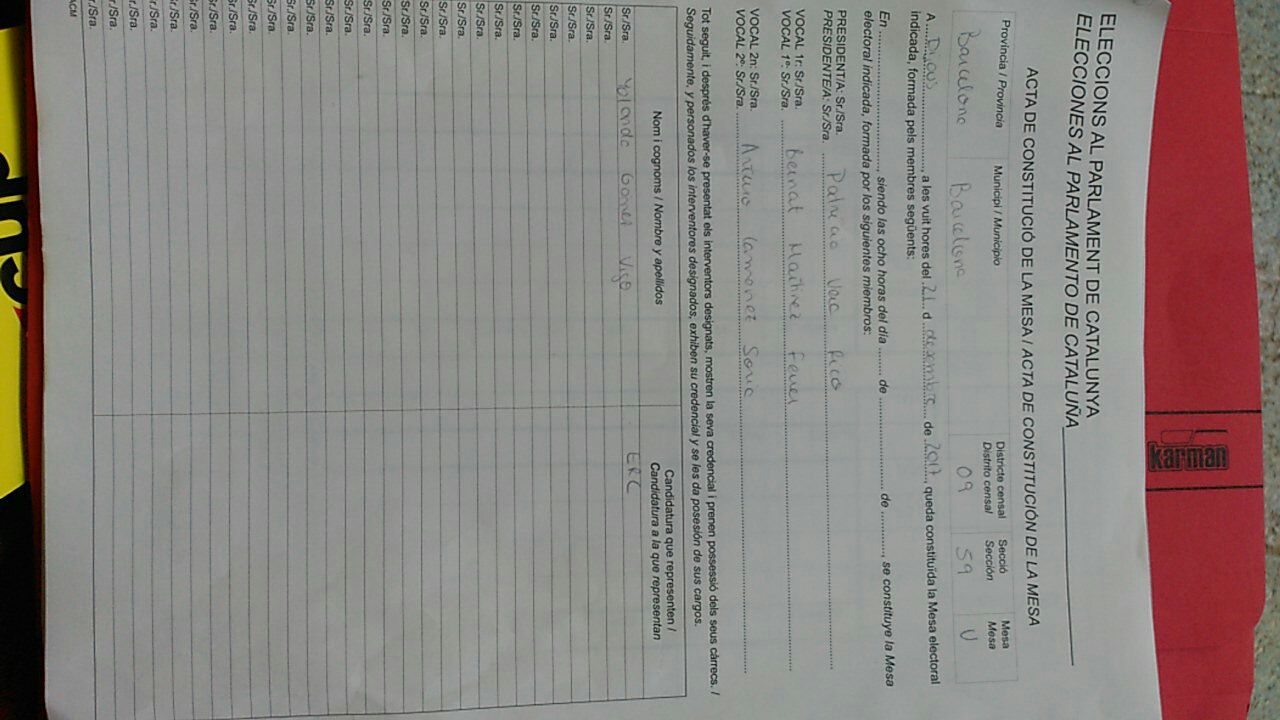 ELECCIONS AL PARLAMENT DE CATALUNYA
ELECCIONES AL PARLAMENTO DE CATALUÑA
ACTA DE CONSTITUCIÓ DE LA MESA / ACTA DE CONSTITUCIÓN DE LA MESA
Província / Provincia Municipi / Municipio Districte censal Secció Mesa
Distrito censal Sección Mesa
Barcelona Barcelona 09 59 U
A ........, a les vuit hores del 21 d desembre de 2017, queda constituïda la Mesa electoral
indicada, formada pels membres següents:
En ........, siendo las ocho horas del día ........ de ........ de ........, se constituye la Mesa
electoral indicada, formada por los siguientes miembros:
PRESIDENT/A: Sr./Sra.
PRESIDENTE/A: Sr./Sra. Rico
VOCAL 1r: Sr./Sra.
VOCAL 1º: Sr./Sra. Bernat Martinez
VOCAL 2n: Sr./Sra.
VOCAL 2º: Sr./Sra. Arturo
Tot seguit, i després d'haver-se presentat els interventors designats, mostren la seva credencial i prenen possessió dels seus càrrecs. /
Seguidamente, y personados los interventores designados, exhiben su credencial y se les da posesión de sus cargos.
Nom i cognoms / Nombre y apellidos Candidatura que representen /
Candidatura a la que representan
Sr./Sra. Yolanda Gomez Vigo ERC
Sr./Sra.
Sr./Sra.
Sr./Sra.
Sr./Sra.
Sr./Sra.
Sr./Sra.
Sr./Sra.
Sr./Sra.
Sr./Sra.
Sr./Sra.
Sr./Sra.
Sr./Sra.
Sr./Sra.
Sr./Sra.
Sr./Sra.
Sr./Sra.
Sr./Sra.
Sr./Sra.
Sr./Sra.
Sr./Sra.
Sr./Sra.
Sr./Sra.
Sr./Sra.
Sr./Sra.
Sr./Sra.
Sr./Sra.
Sr./Sra.
karman